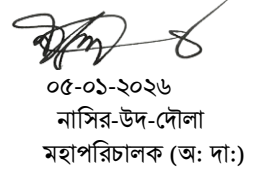 ০৫-০১-২০২৬
নাসির-উদ-দৌলা
মহাপরিচালক (অ: দা:)